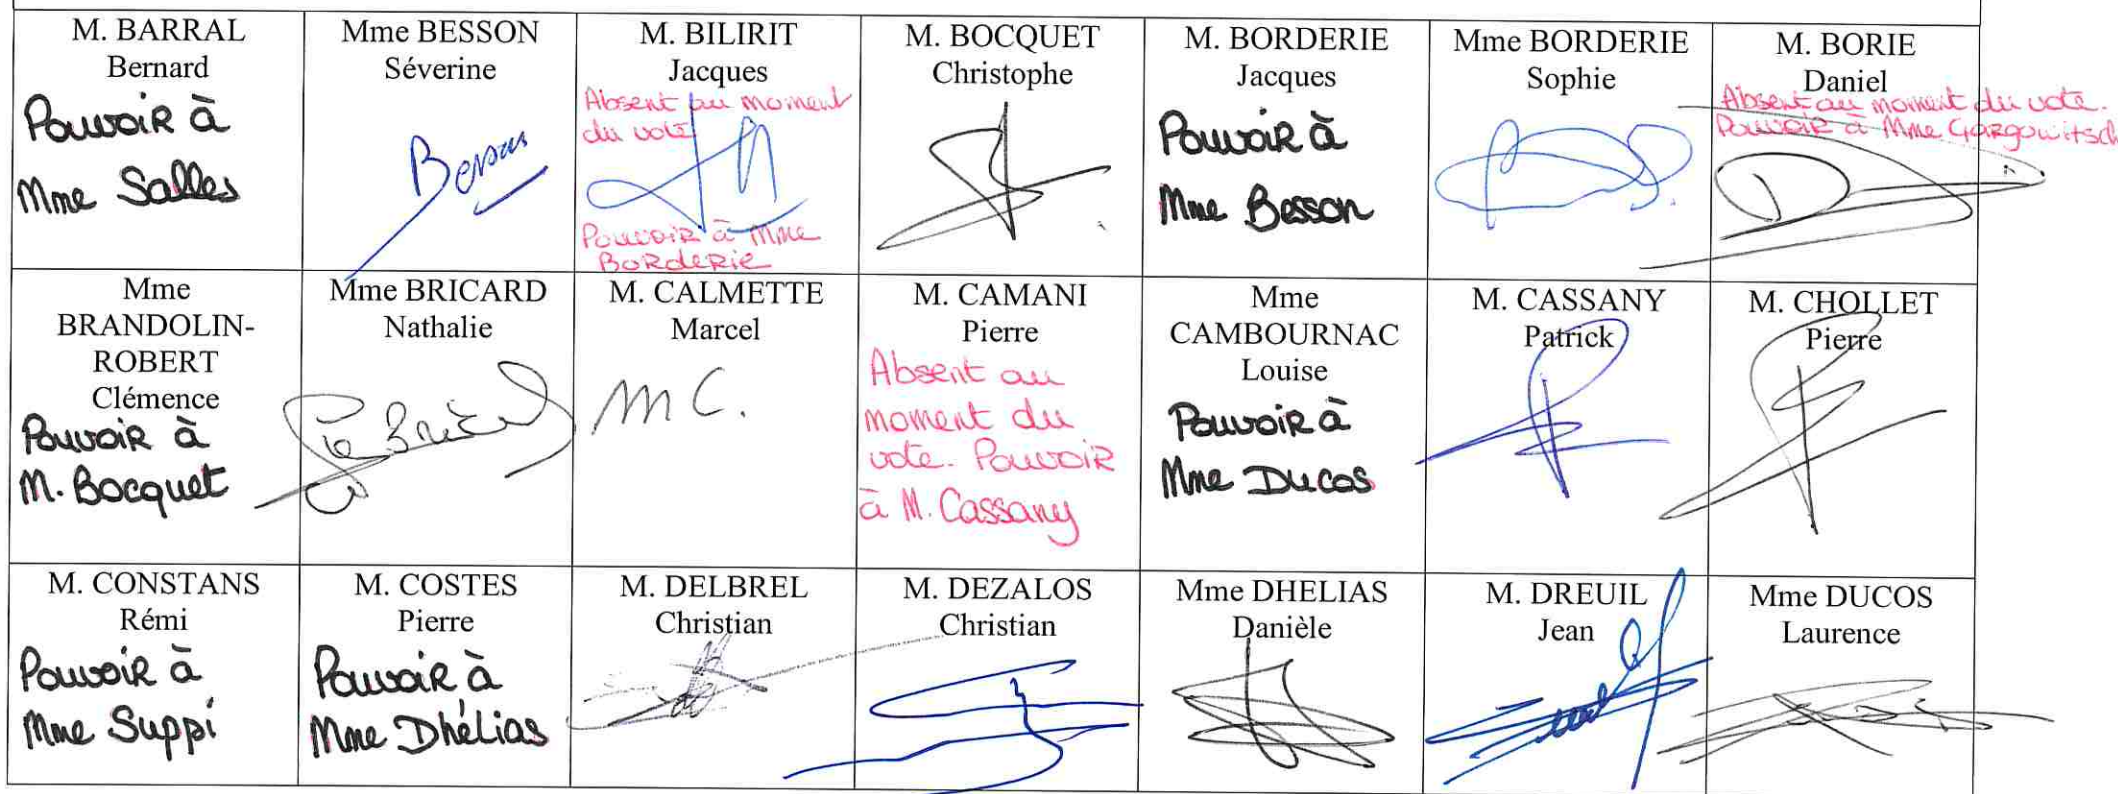 M. BARRAL
Bernard
Pouvoir à
Mme Salles
Mme BESSON
Séverine
Besson
M. BILIRIT
Jacques
Absent au moment
du vote
Pouvoir à Mme
Borderie
M. BOCQUET
Christophe
M. BORDERIE
Jacques
Pouvoir à
Mme Besson
Mme BORDERIE
Sophie
M. BORIE
Daniel
Absent au moment du vote.
Pouvoir à Mme Gargowitsch
Mme
BRANDOLIN-
ROBERT
Clémence
Pouvoir à
M. Bocquet
Mme BRICARD
Nathalie
M. CALMETTE
Marcel
MC.
M. CAMANI
Pierre
Absent au
moment du
vote. Pouvoir
à M. Cassany
Mme
CAMBOURNAC
Louise
Pouvoir à
Mme Ducos
M. CASSANY
Patrick
M. CHOLLET
Pierre
M. CONSTANS
Rémi
Pouvoir à
Mme Suppi
M. COSTES
Pierre
Pouvoir à
Mme Dhélias
M. DELBREL
Christian
M. DEZALOS
Christian
Mme DHELIAS
Danièle
M. DREUIL
Jean
Mme DUCOS
Laurence